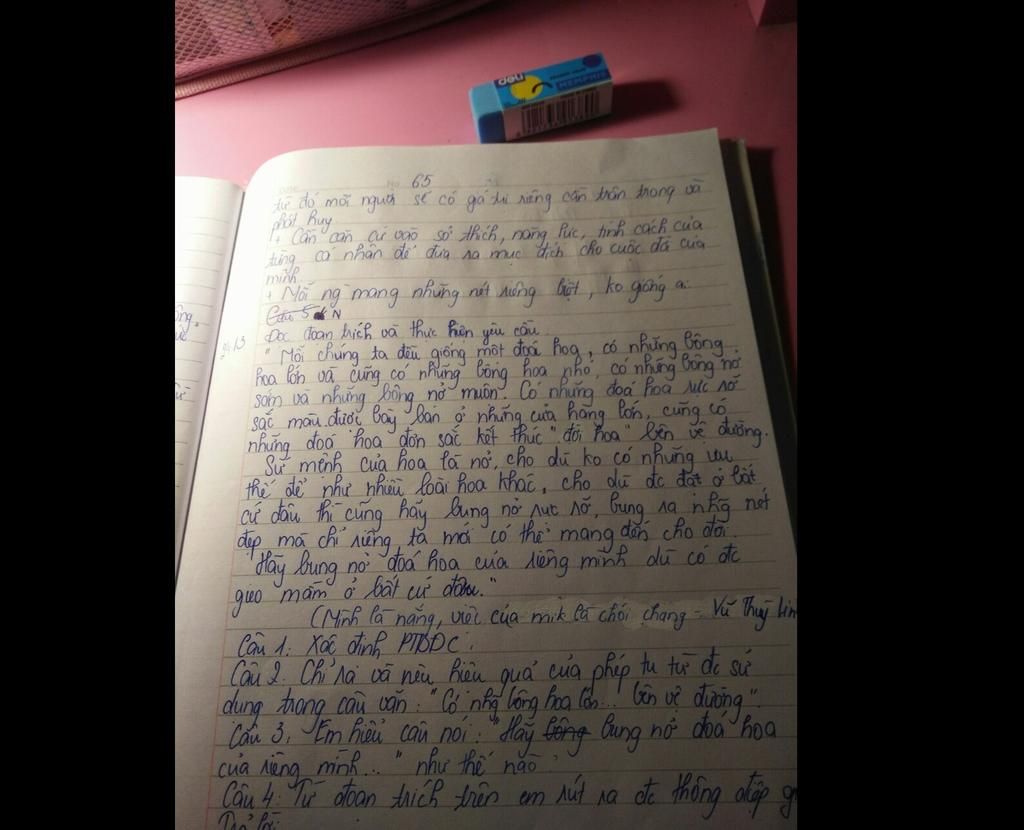 deli
MEMPHIS
No 65
từ đó mỗi người sẽ có giá trị riêng cần trân trọng và
phát huy
+ Cần căn cứ vào sở thích, năng lực, tính cách của
từng cá nhân để đưa ra mục đích cho cuộc đời của
mình
+ Mỗi ng mang những nét riêng biệt, ko giống ai
Câu 5 N
Đọc đoạn trích và thực hiện yêu cầu
" Mỗi chúng ta đều giống một đoá hoa, có những bông
hoa lớn và cũng có những bông hoa nhỏ, có những bông nở
sớm và những bông nở muộn. Có những đoá hoa rực rỡ
sắc màu được bày bán ở những cửa hàng lớn, cũng có
những đoá hoa đơn sắc kết thúc "đời hoa" bên vệ đường.
Sứ mệnh của hoa là nở, cho dù ko có những ưu
thế để như nhiều loài hoa khác, cho dù đc đặt ở bất
cứ đâu thì cũng hãy bung nở rực rỡ, bung ra nhg nét
đẹp mà chỉ riêng ta mới có thể mang đến cho đời.
Hãy bung nở đoá hoa của riêng mình dù có đc
gieo mầm ở bất cứ đâu."
(Mình là nắng, việc của mik là chói chang - Vũ Thuỳ Lin
Câu 1: Xác định PTBDC.
Câu 2. Chỉ ra và nêu hiệu quả của phép tu từ đc sử
dụng trong câu văn: "Có nhg bông hoa lớn... bên vệ đường".
Câu 3: Em hiểu câu nói: "Hãy bông bung nở đoá hoa
của riêng mình..." như thế nào
Câu 4: Từ đoạn trích trên em rút ra đc thông điệp g
Trả lời